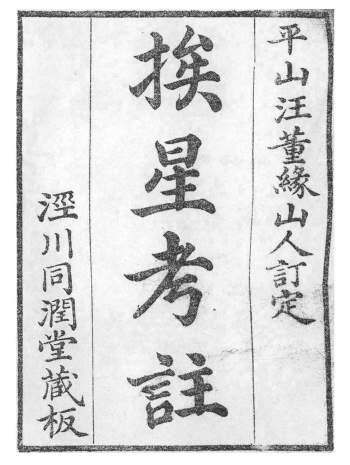 平山汪董緣山人訂定
挨星考註
涇川同潤堂蔵板